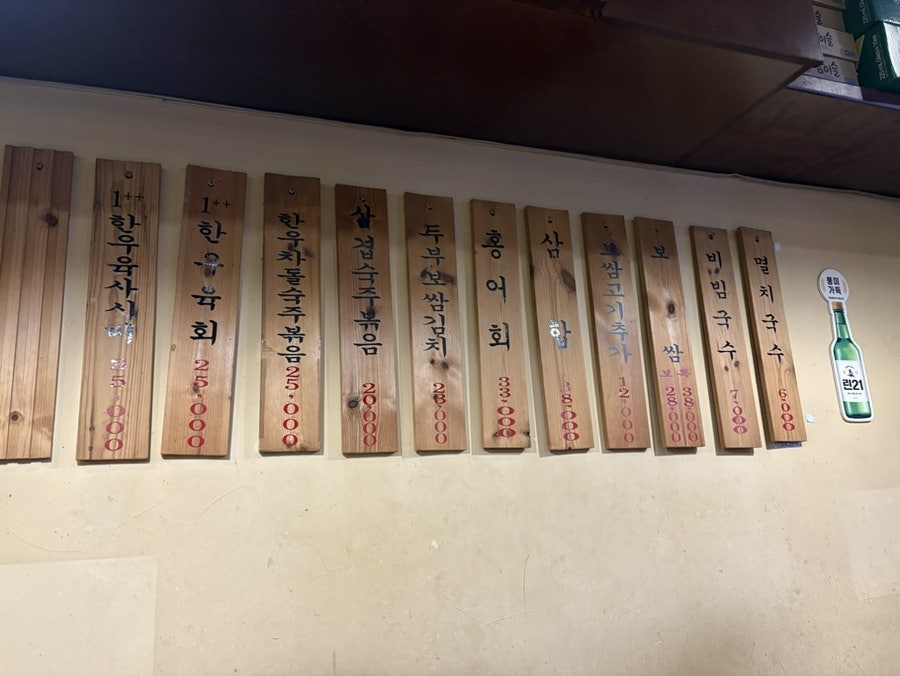 1++
한우육사시미
25,000
1++
한우육회
25,000
한우차돌숙주볶음
25,000
삼겹숙주볶음
20,000
두부보쌈김치
23,000
홍어회
33,000
삼합
38,000
보쌈고기추가
12,000
보쌈
38,000
28,000
비빔국수
7,000
멸치국수
6,000
풍미
가득
린21